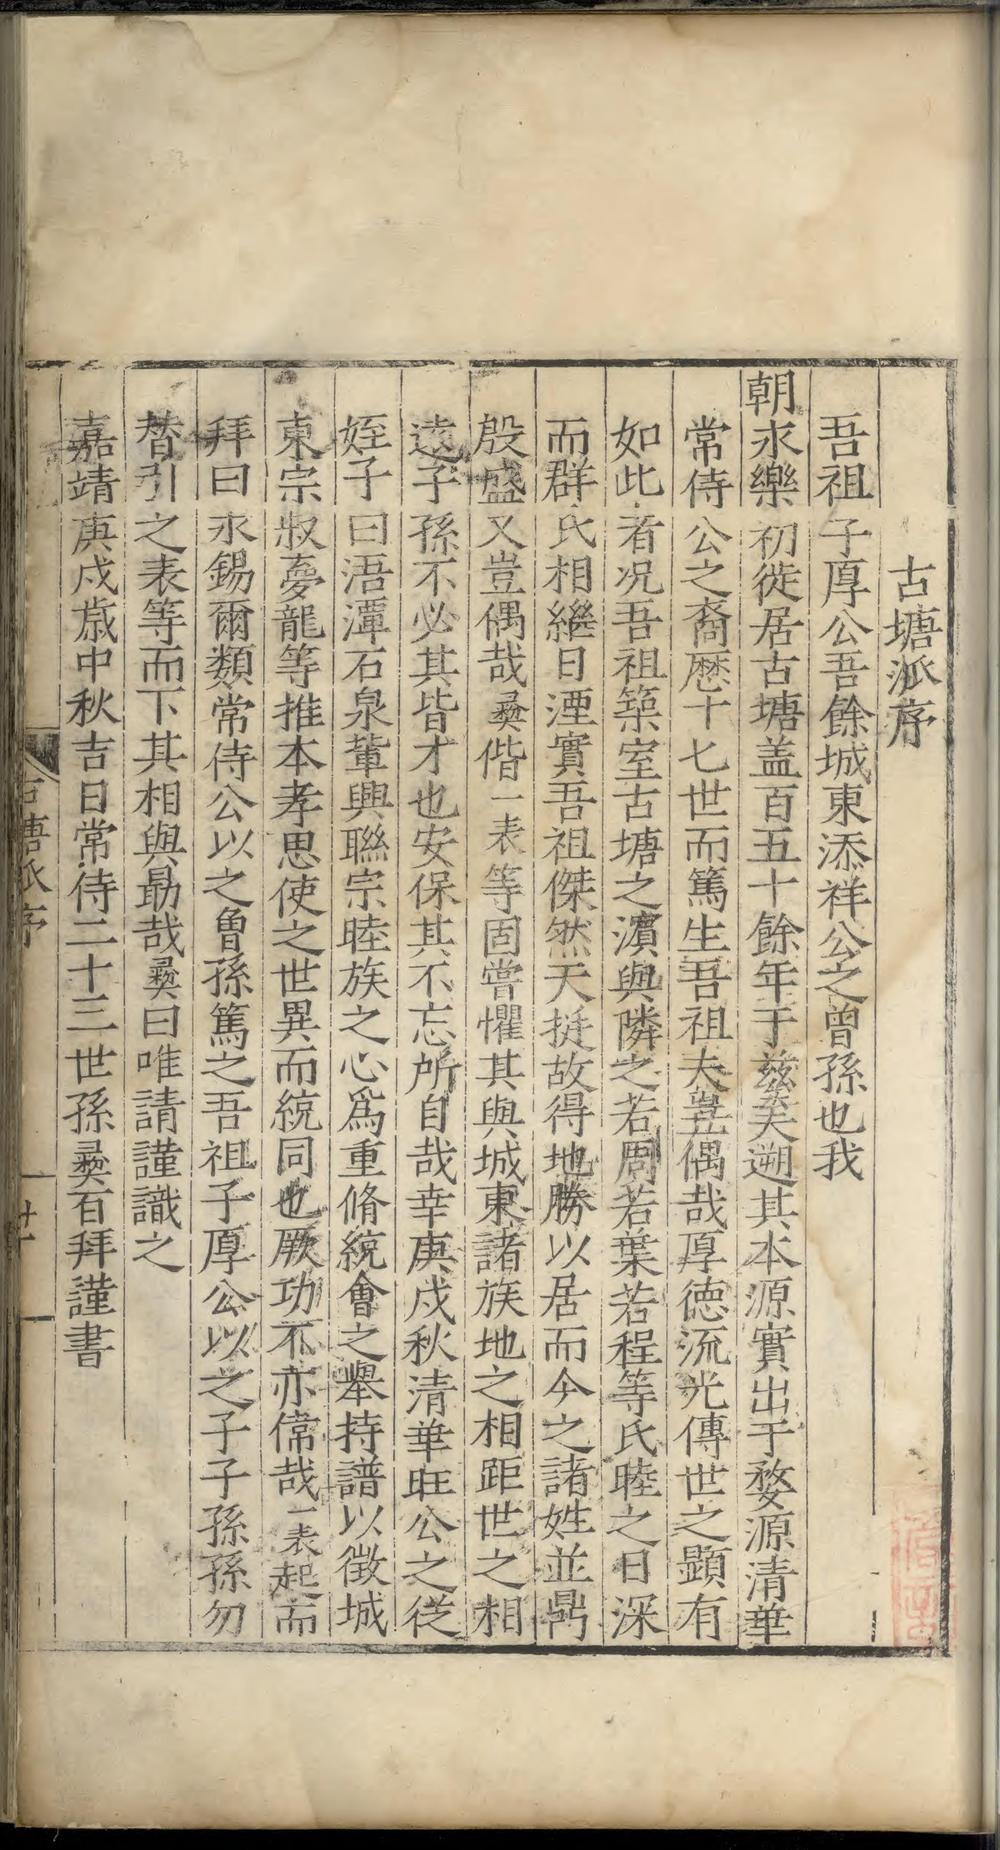 古塘派序
吾祖子厚公吾餘城東添祥公之曾孫也我
朝永樂初徙居古塘盖百五十餘年于兹矣遡其本源實出于婺源清華
常侍公之裔厯十七世而篤生吾祖夫豈偶哉厚德流光傳世之顯有
如此者况吾祖築室古塘之濱與隣之若周若葉若程等氏睦之日深
而群氏相繼日湮實吾祖傑然天挺故得地勝以居而今之諸姓並鼎
殷盛又豈偶哉彞偕一表等固嘗懼其與城東諸族地之相距世之相
遠子孫不必其皆才也安保其不忘所自哉幸庚戍秋清華旺公之從
姪子曰浯潭石泉軰興聯宗睦族之心爲重脩統會之舉持譜以徵城
東宗叔夢龍等推本孝思使之世異而統同也厥功不亦偉哉一表起而
拜曰永錫爾類常侍公以之曾孫篤之吾祖子厚公以之子子孫孫勿
替引之表等而下其相與勗哉彞曰唯請謹識之
嘉靖庚戍歳中秋吉日常侍二十三世孫彞百拜謹書
古塘派序
廿一